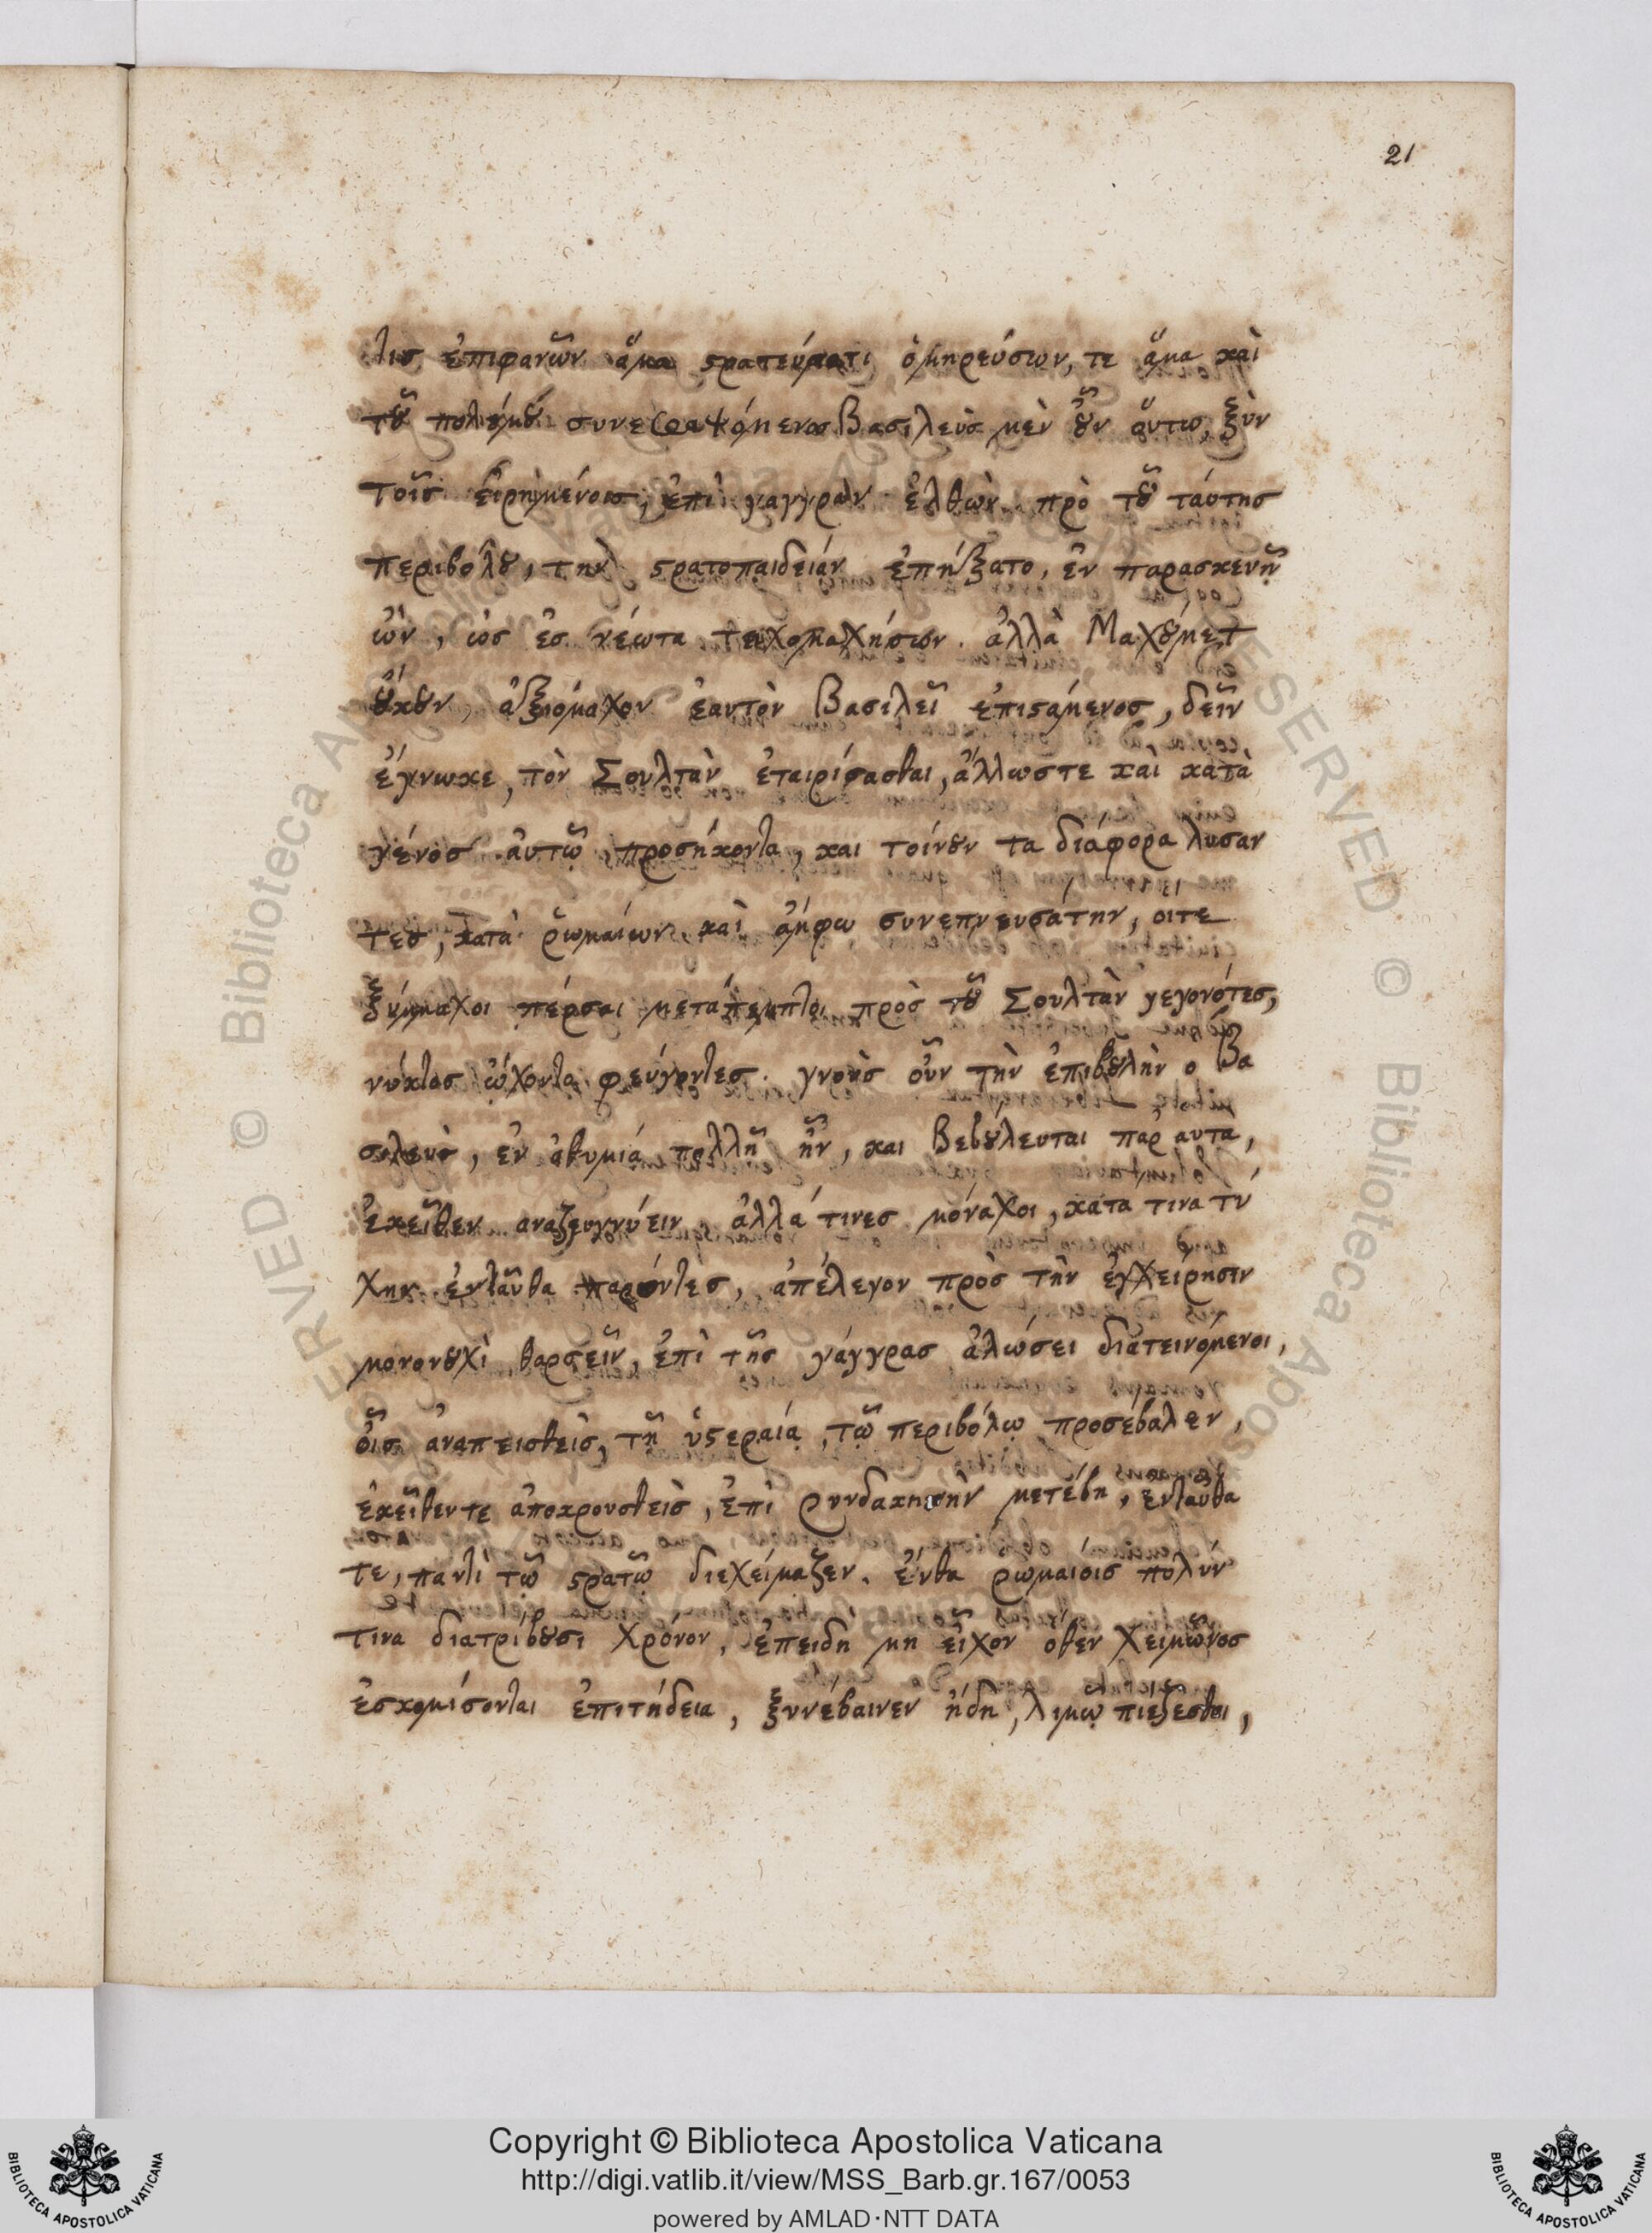 21
λισ ἐπιφανῶν ἅμα στρατεύματι ὁμηρεύσων, τε ἅμα καὶ
τοῦ πολέμου συνεφαψόμενοσ Βασιλεὺσ μὲν οὖν οὕτω, ξὺν
τοῖσ εἰρημένοισ, ἐπὶ γαγγραν ἐλθὼν πρὸ τοῦ ταύτησ
περιβόλου, την στρατοπαιδείαν ἐπήξατο, ἐν παρασκευῆ
ὢν, ὡσ ἐσ νέωτα τειχομαχήσων. ἀλλὰ Μαχούμετ
οὔκουν, ἀξιόμαχον ἑαυτὸν Βασιλεῖ ἐπιστάμενοσ, δεῖν
ἔγνωκε, τὸν Σουλτὰν ἑταιρίσασθαι, ἄλλωστε καὶ κατὰ
γένοσ αὐτῷ προσήκοντα, και τοίνυν τα διάφορα λυσαν
τεσ, κατὰ ῥωμαίων καὶ ἄμφω συνεπνευσατην, οιτε
ξύμμαχοι πέρσαι μετάπεμπτοι πρὸσ τοῦ Σουλτὰν γεγονότεσ,
νύκτασ ᾤχοντο φεύγοντεσ. γνοὺσ οὖν τὴν ἐπιβουλὴν ο Βα
σιλευσ, ἐν ἀθυμιά πολλῆ ἦν, και Βεβούλευται παρ αυτα,
ἐκεῖθεν αναζευγνύειν, ἀλλά τινεσ μόναχοι, κατα τινα τύ
χην ἐνταῦθα παρόντεσ, ἀπέλεγον πρὸσ τὴν ἐγχείρησιν
μονονουχὶ θαρσεῖν, ἐπὶ τῆσ γάγγρασ ἁλώσει διατεινόμενοι,
οἷσ ἀναπεισθεὶσ, τῇ ὑστεραίᾳ, τῷ περιβόλῳ προσέβαλεν,
ἐκεῖθεν τε ἀποκρουσθεὶσ, ἐπὶ ρυνδακηνὴν μετέβη, ἐνταῦθα
τε, παντὶ τῷ στρατῷ διεχείμαζεν. ἔνθα ρωμαίοισ πολύν
τινα διατρίβουσι χρόνον, ἐπειδὴ μη εἶχον ὅθεν χειμῶνοσ
ἐσκομίσονται ἐπιτήδεια, ξυνέβαινεν ἤδη, λιμῷ πιέζεσθαι,
Copyright © Biblioteca Apostolica Vaticana
http://digi.vatlib.it/view/MSS_Barb.gr.167/0053
powered by AMLAD·NTT DATA